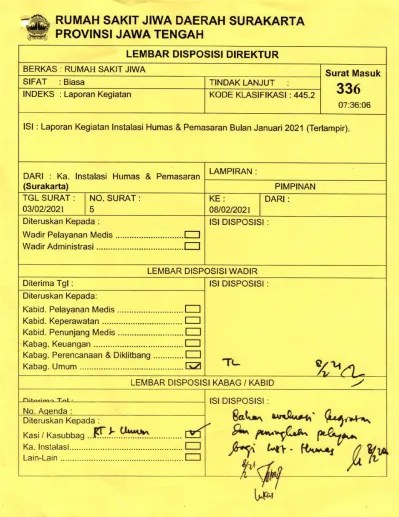 RUMAH SAKIT JIWA DAERAH SURAKARTA
PROVINSI JAWA TENGAH
LEMBAR DISPOSISI DIREKTUR
BERKAS : RUMAH SAKIT JIWA
SIFAT : Biasa
TINDAK LANJUT :
INDEKS : Laporan Kegiatan
KODE KLASIFIKASI : 445.2
Surat Masuk
336
07:36:06
ISI : Laporan Kegiatan Instalasi Humas & Pemasaran Bulan Januari 2021 (Terlampir).
DARI : Ka. Instalasi Humas & Pemasaran
(Surakarta)
LAMPIRAN :
PIMPINAN
TGL SURAT :
03/02/2021
NO. SURAT :
5
KE :
08/02/2021
DARI :
Diteruskan Kepada :
Wadir Pelayanan Medis
Wadir Administrasi
ISI DISPOSISI :
LEMBAR DISPOSISI WADIR
Diterima Tgl :
Diteruskan Kepada:
Kabid. Pelayanan Medis
Kabid. Keperawatan
Kabid. Penunjang Medis
Kabag. Keuangan
Kabag. Perencanaan & Diklitbang
Kabag. Umum
ISI DISPOSISI :
TL
8/2 21
LEMBAR DISPOSISI KABAG / KABID
Diterima Tgl :
No. Agenda :
Diteruskan Kepada :
Kasi / Kasubbag RT & Umum
Ka. Instalasi
Lain-Lain
ISI DISPOSISI :
Bahan evaluasi kegiatan
dan peningkatan pelayanan
bagi Inst. Humas
8/2 21